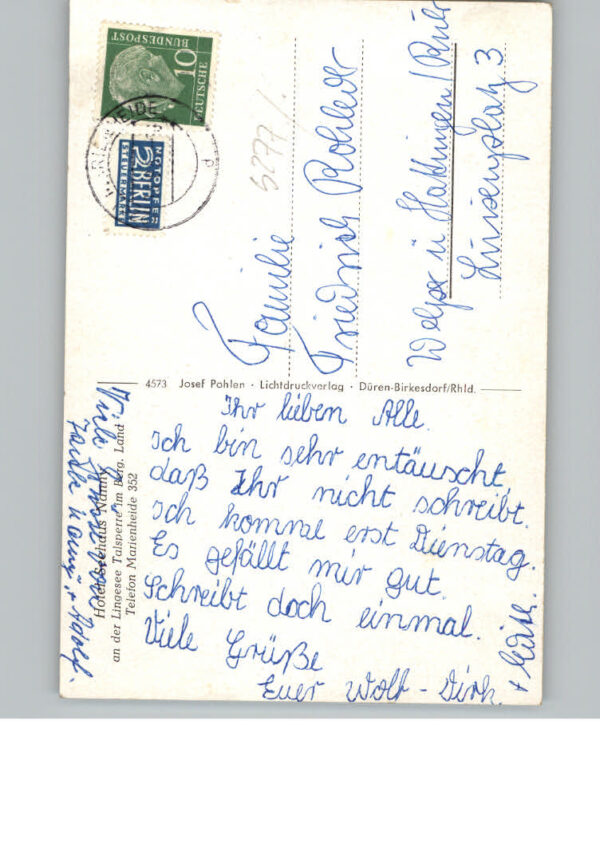 DEUTSCHE
BUNDESPOST
10
MARIENHEIDE
NOTOPFER
2 BERLIN
STEUERMARKE
5277/.
Familie
Friedrich Rohleder
Welper ü Hattingen/Ruhr
Luisenplatz 3
4573 Josef Pohlen · Lichtdruckverlag · Düren-Birkesdorf/Rhld.
Ihr lieben Alle.
Ich bin sehr entäuscht
daß Ihr nicht schreibt.
Ich komme erst Dienstag.
Es gefällt mir gut.
Schreibt doch einmal.
Viele Grüße
Euer Wolf-Dirk.
Viele Grüße
Tante u Adolf.
Hotel Seehaus Nanny
an der Lingesee Talsperre im Berg. Land
Telefon Marienheide 352